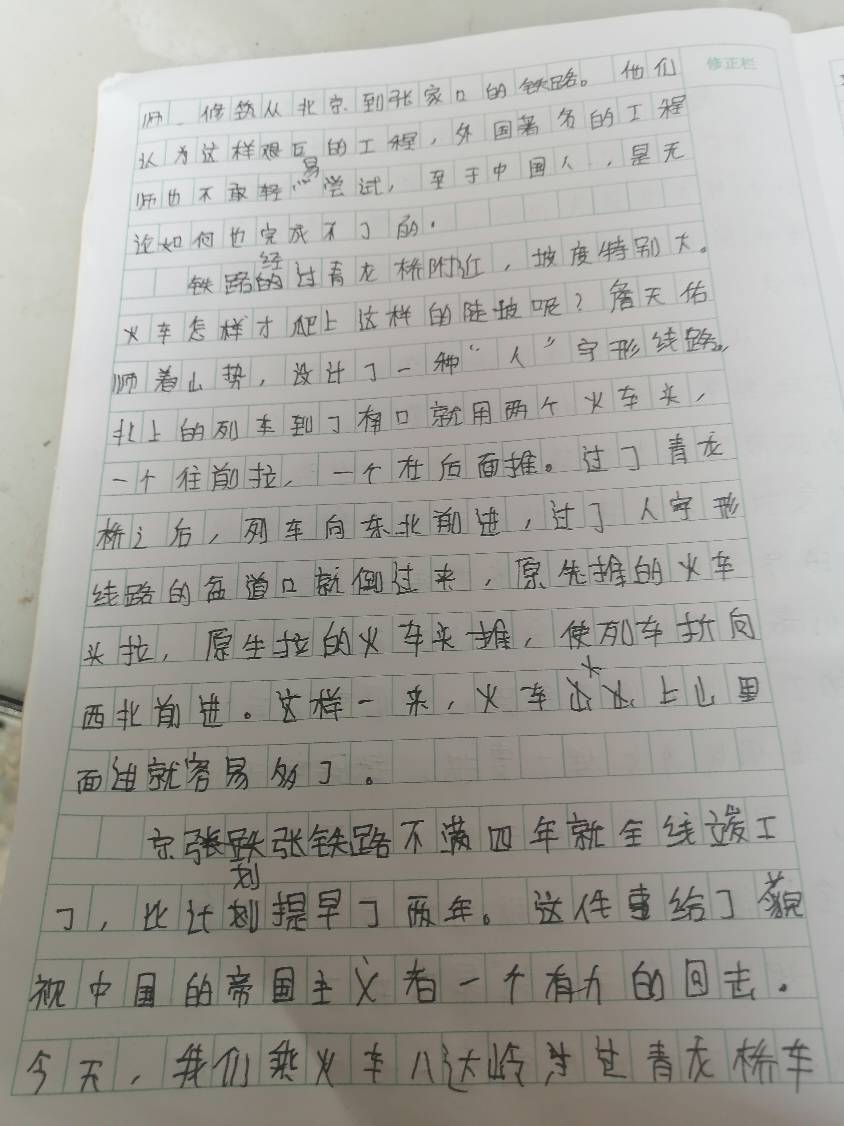 修正栏
师、修筑从北京到张家口的铁路。他们
认为这样艰巨的工程，外国著名的工程
师也不敢轻易尝试，至于中国人，是无
论如何也完成不了的．
铁路经过青龙桥附近，坡度特别大。
火车怎样才爬上这样的陡坡呢？詹天佑
顺着山势，设计了一种“人”字形线路。
北上的列车到了南口就用两个火车头，
一个往前拉，一个在后面推。过了青龙
桥之后，列车向东北前进，过了人字形
线路的岔道口就倒过来，原先推的火车
头拉，原先拉的火车头推，使列车折向
西北前进。这样一来，火车上山里
面进就容易多了。
京张铁张铁路不满四年就全线竣工
了，比计划提早了两年。这件事给了藐
视中国的帝国主义者一个有力的回击．
今天，我们乘火车八达岭过青龙桥车